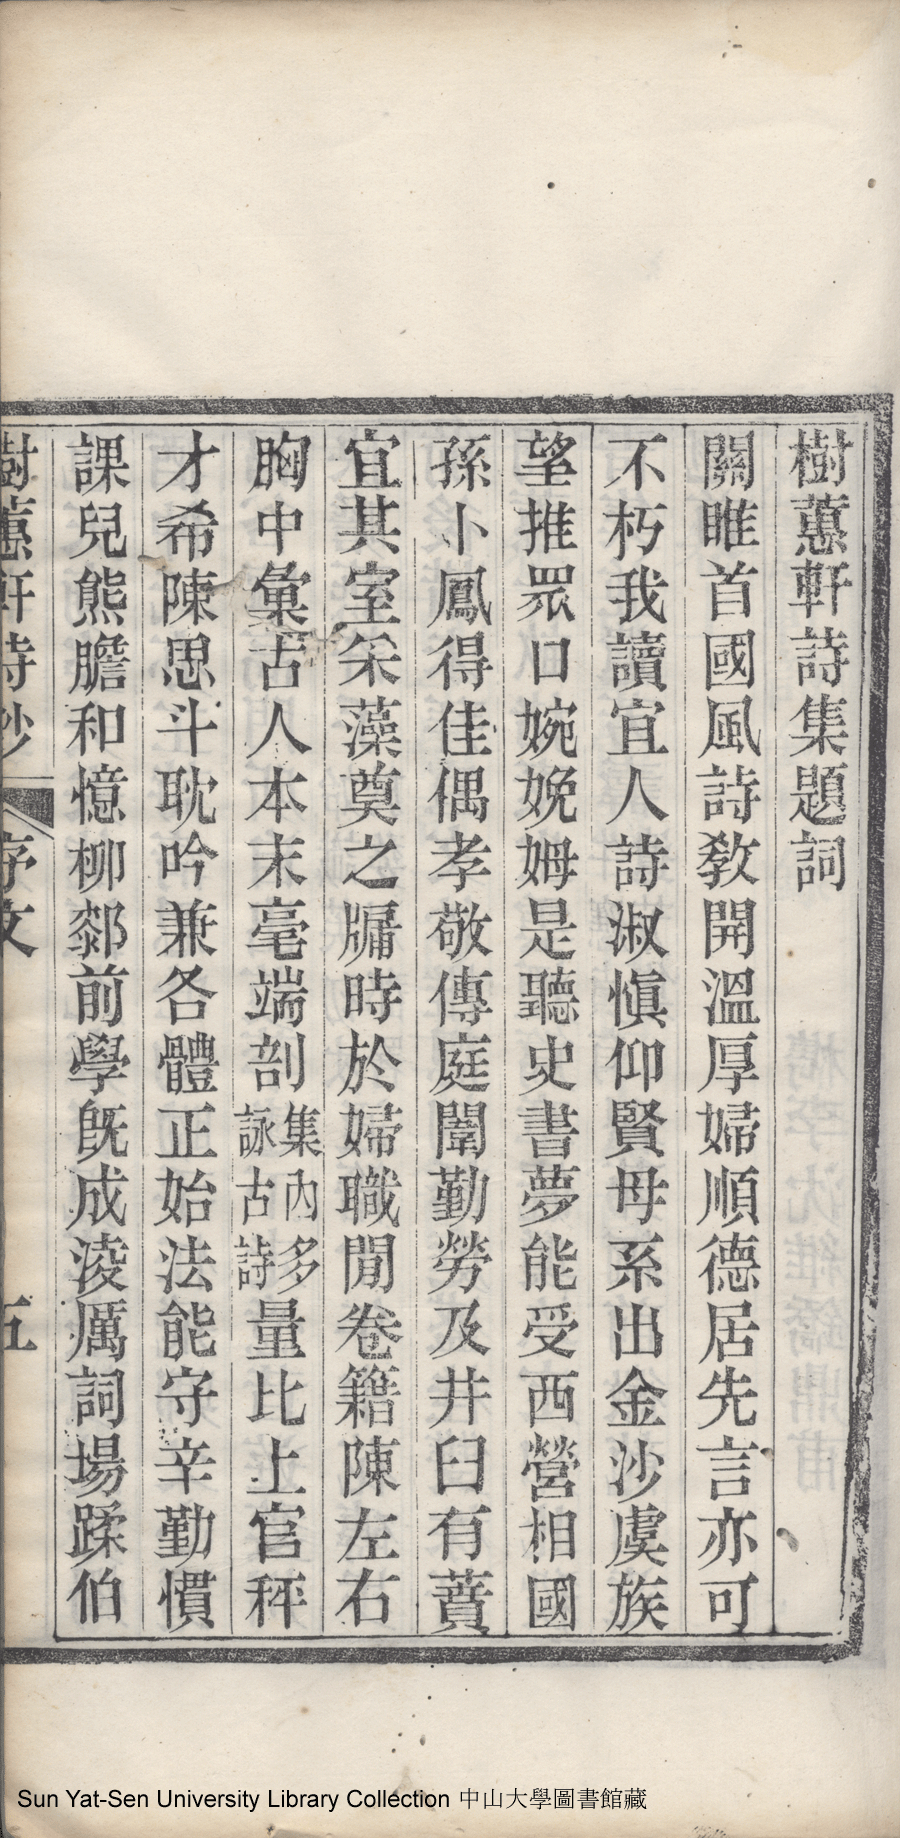 樹蕙軒詩集題詞
關雎首國風詩教開溫厚婦順德居先言亦可
不朽我讀宜人詩淑愼仰賢母系出金沙虞族
望推眾口婉娩姆是聽史書夢能受西營相國
孫卜鳳得佳偶孝敬傳庭闈勤勞及井臼有蕡
宜其室采藻奠之牖時於婦職閒卷籍陳左右
胸中彙古人本末毫端剖集內多詠古詩量比上官秤
才希陳思斗耽吟兼各體正始法能守辛勤慣
課兒熊膽和憶柳鄰前學旣成淩厲詞場蹂伯
樹蕙軒詩鈔 序文 五
Sun Yat-Sen University Library Collection 中山大學圖書館藏